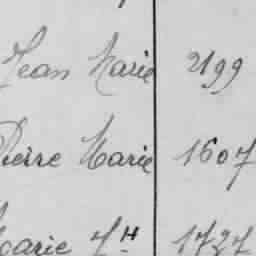 Jean Marie 2199
Pierre Marie 1607
Marie 1727